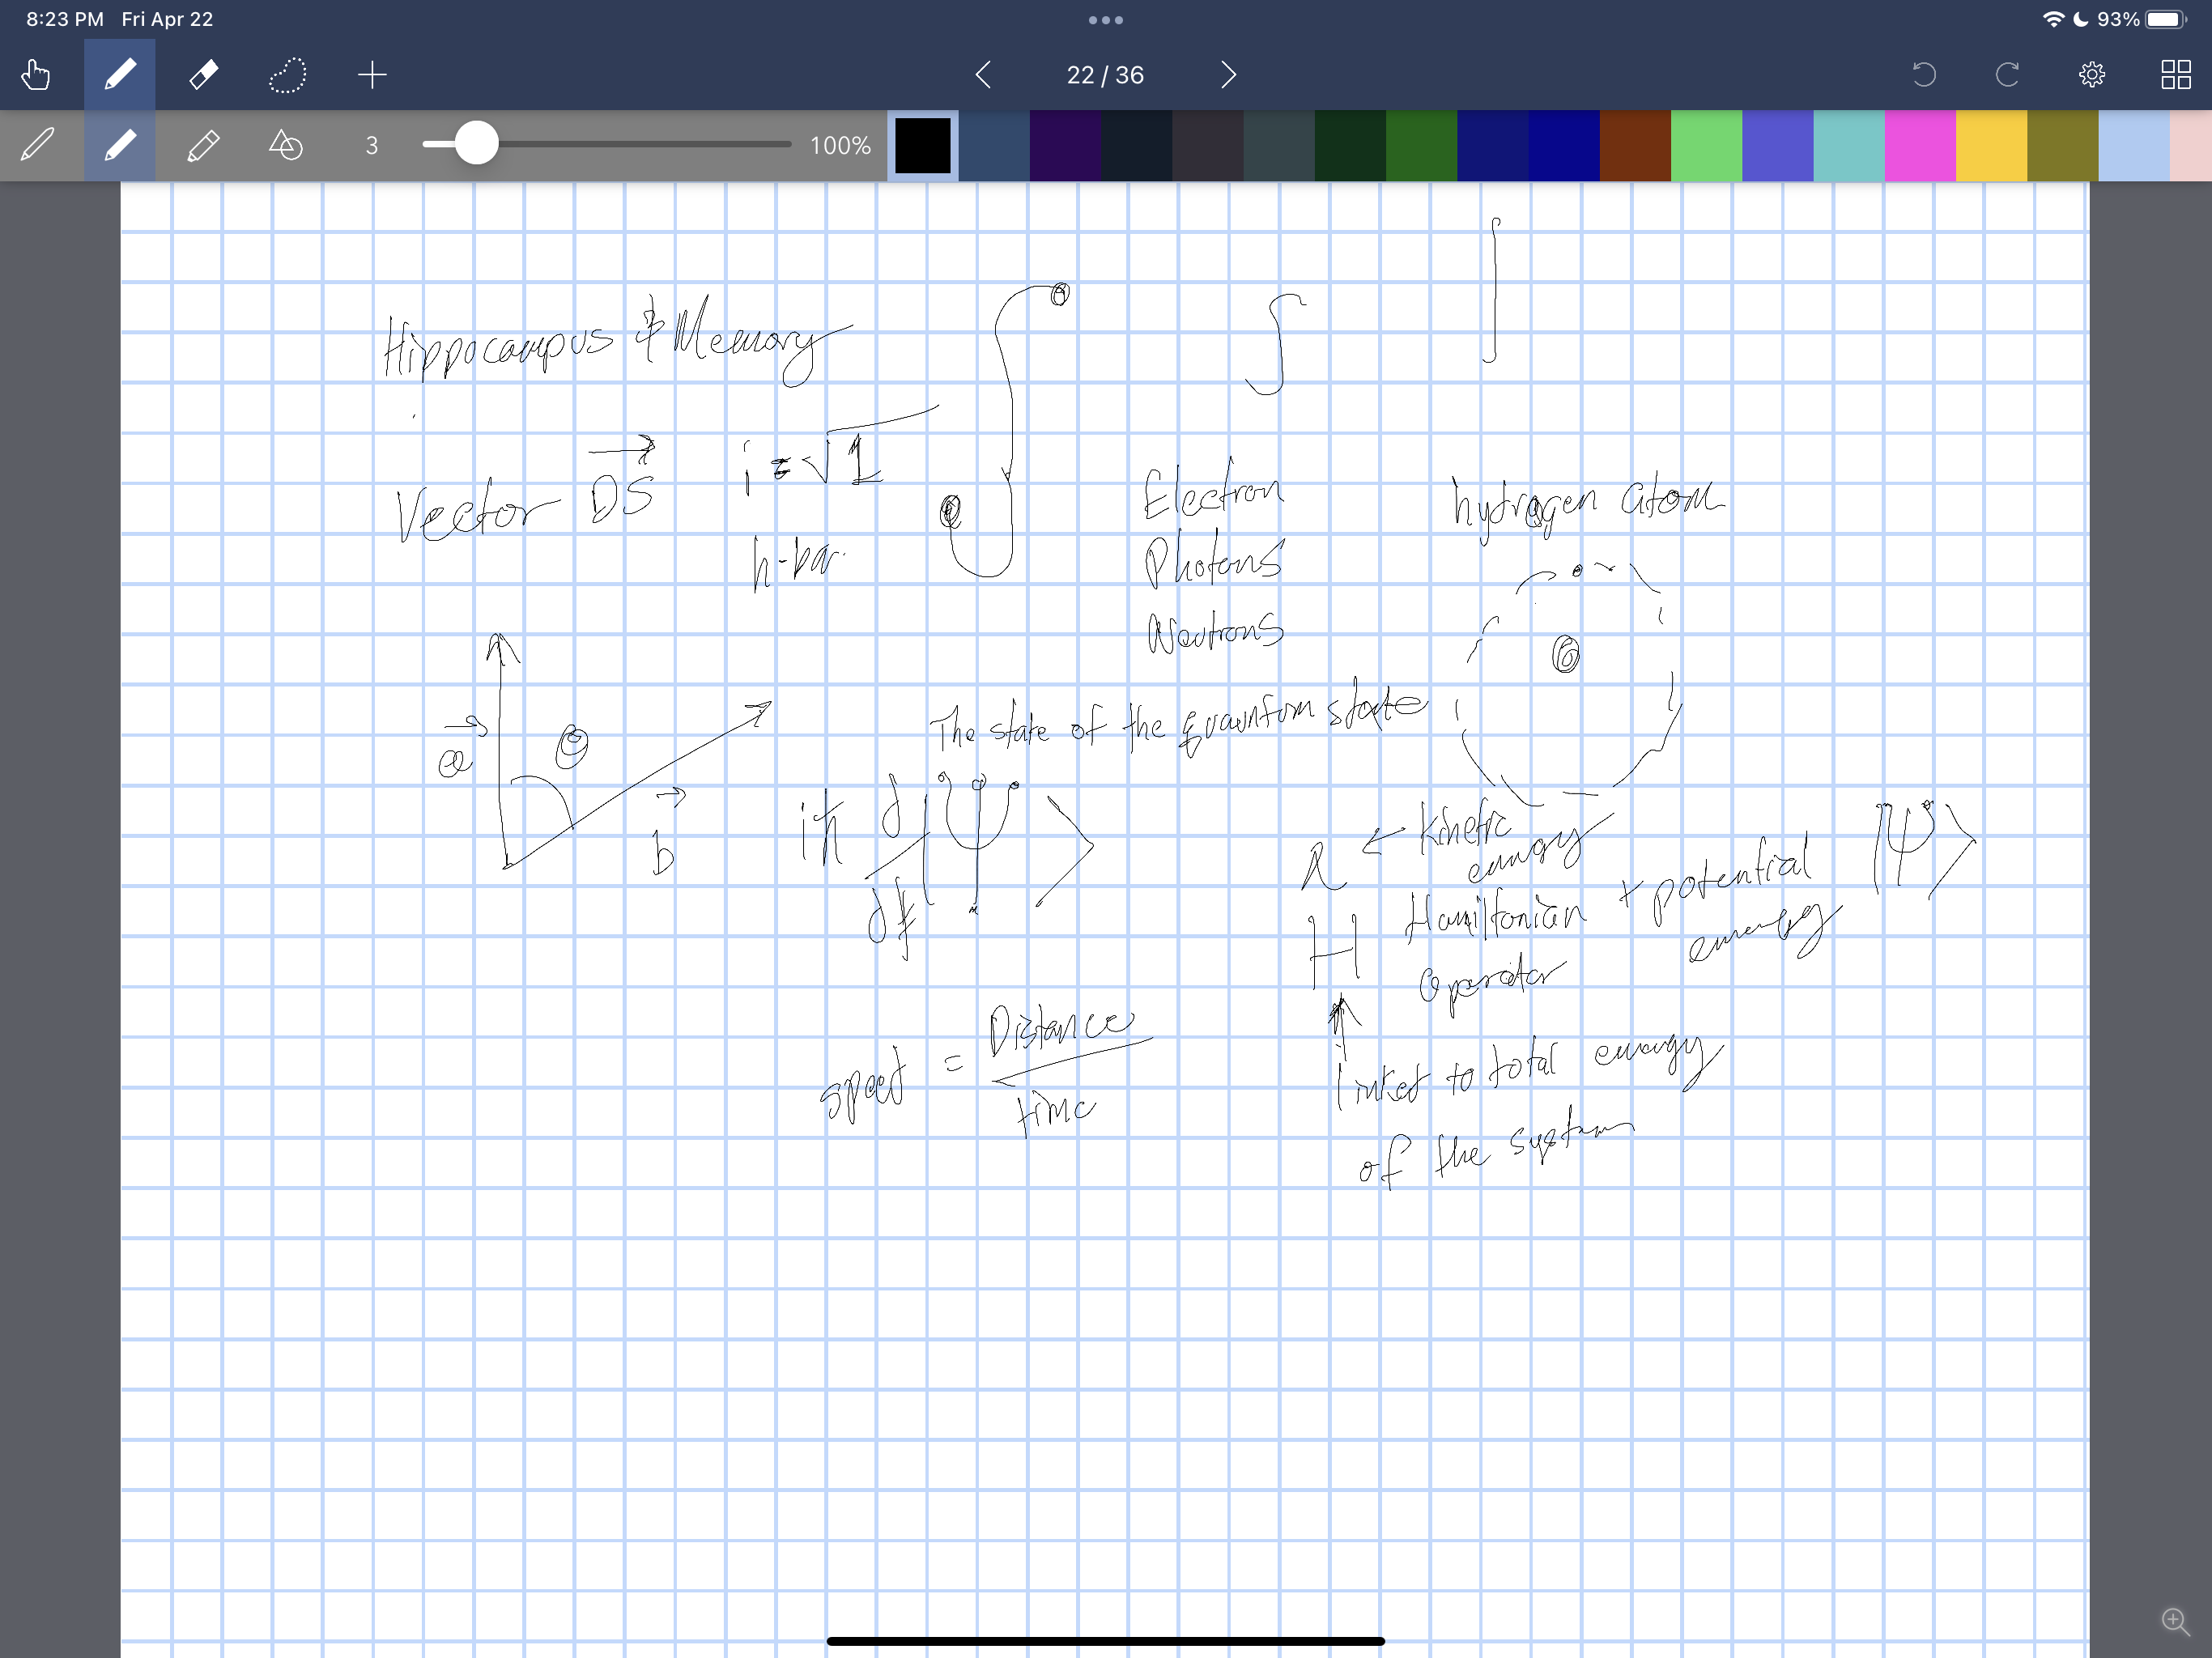 8:23 PM Fri Apr 22
93%
22 / 36
3
100%
Hippocampus & Memory
Vector DS
i = √1
h-bar
Electron
Photons
Neutrons
hydrogen atom
a
θ
b
The state of the quantum state
iħ d/dt |Ψ⟩
← Kinetic energy
H Hamiltonian operator
+ potential energy
|Ψ⟩
speed = Distance / time
linked to total energy
of the system